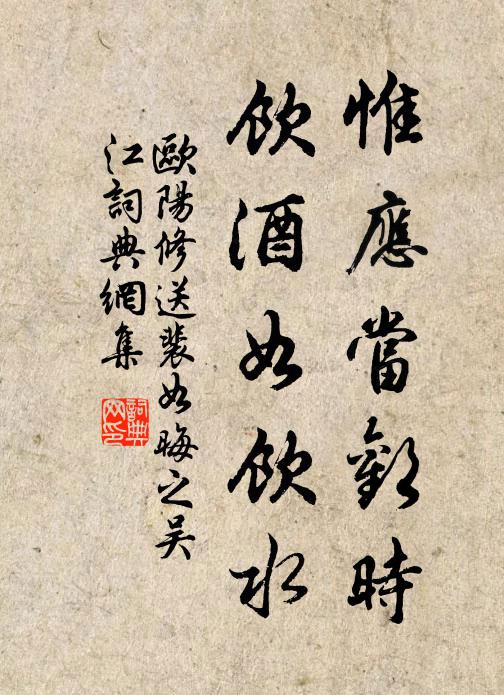 惟應當歡時
飲酒如飲水
歐陽修送裴如晦之吳
江詞典網集
詞典
网印